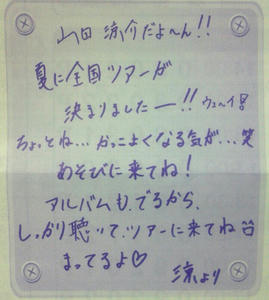 山田涼介だよ〜ん!!
夏に全国ツアーが
決まりましたー!!ウェ〜イ
ちょっとね…かっこよくなる気が…笑
あそびに来てね!
アルバムも、でるから、
しっかり聴いて、ツアーに来てね
まってるよ♡
涼より